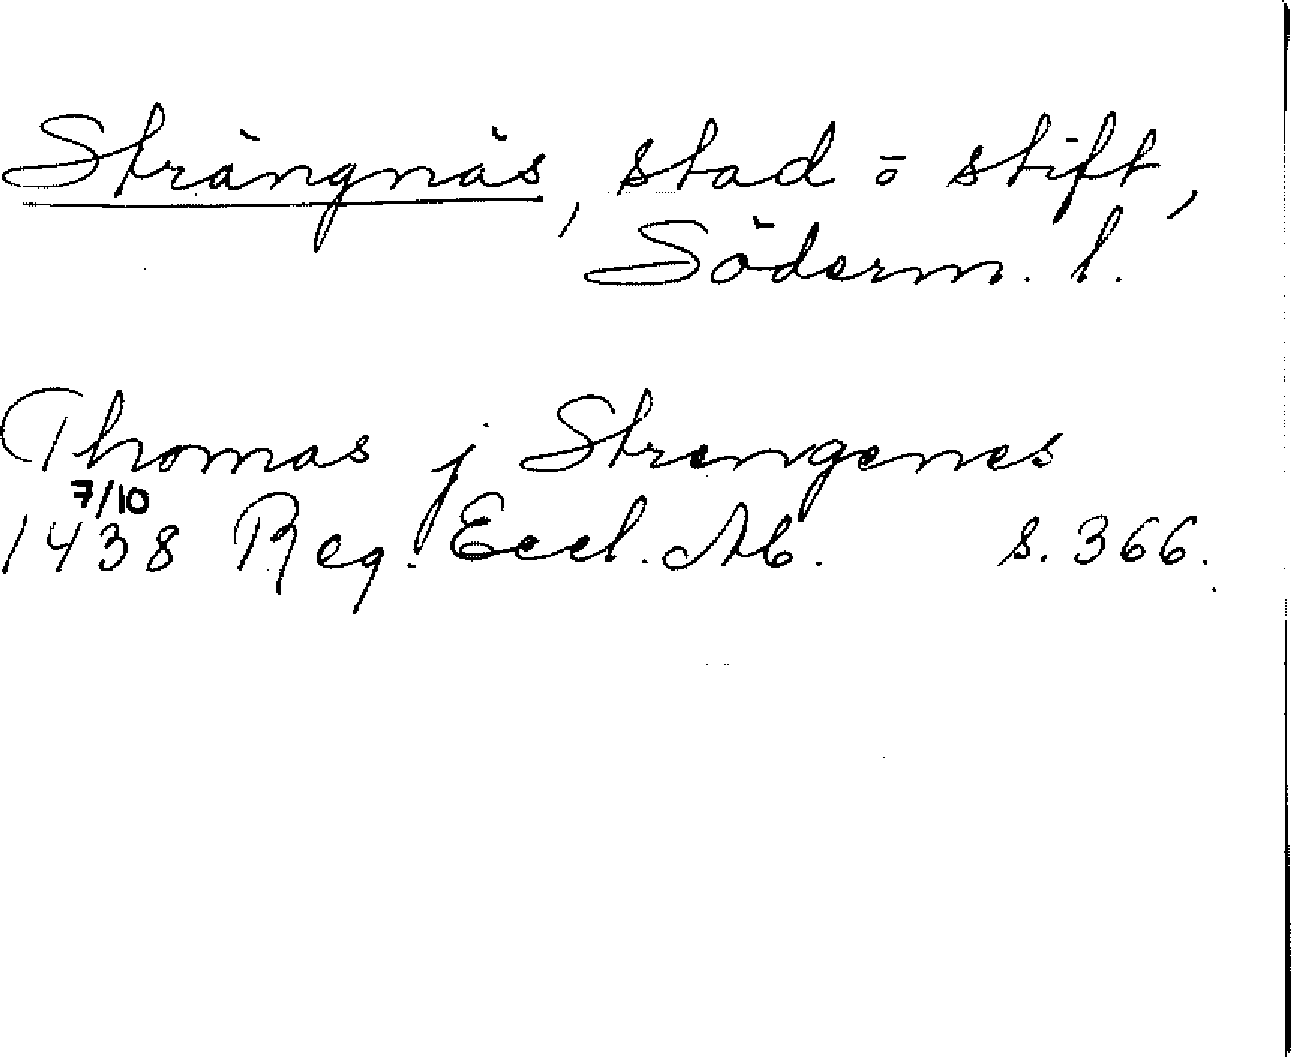 Strängnäs, stad o stift,
Söderm. l.
Thomas j Strengenes
7/10
1438 Reg. Eccl. Ab. s. 366.